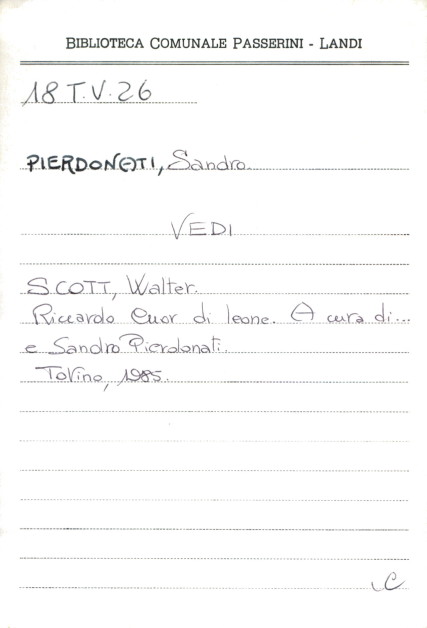 BIBLIOTECA COMUNALE PASSERINI - LANDI
18 T.V. 26
PIERDONATI, Sandro.
VEDI
SCOTT, Walter.
Riccardo Cuor di leone. A cura di...
e Sandro Pierdonati.
Torino, 1985.
C